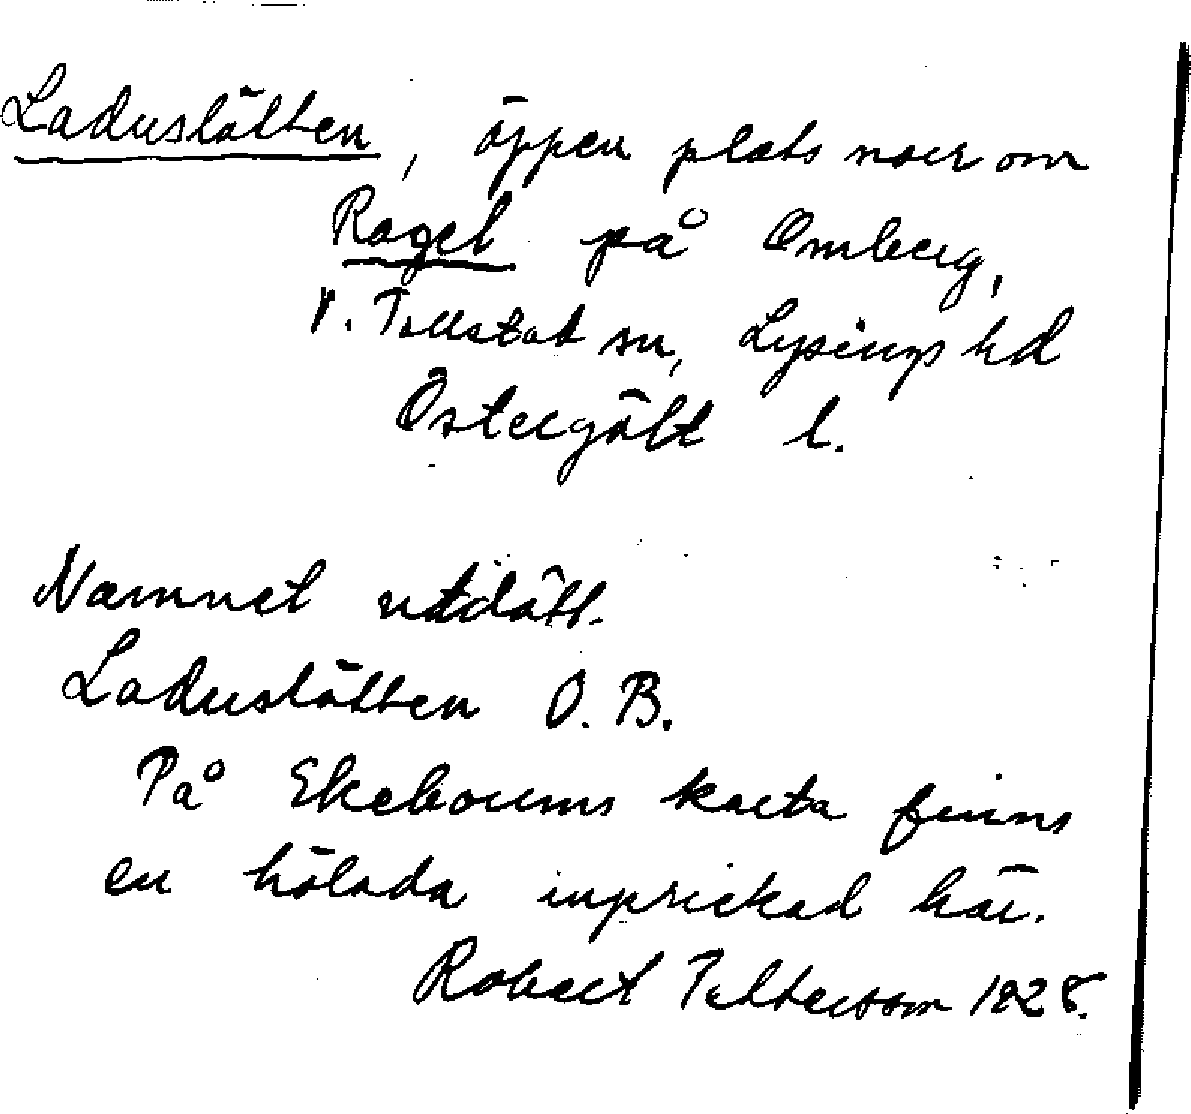 Laduslätten, öppen plats norr om
Ragel på Omberg,
V. Tollstad sn, Lysings hd
Östergötl l.
Namnet utdött.
Laduslätten O.B.
På Ekeboums karta finns
en hölada inprickad här.
Robert 1928.